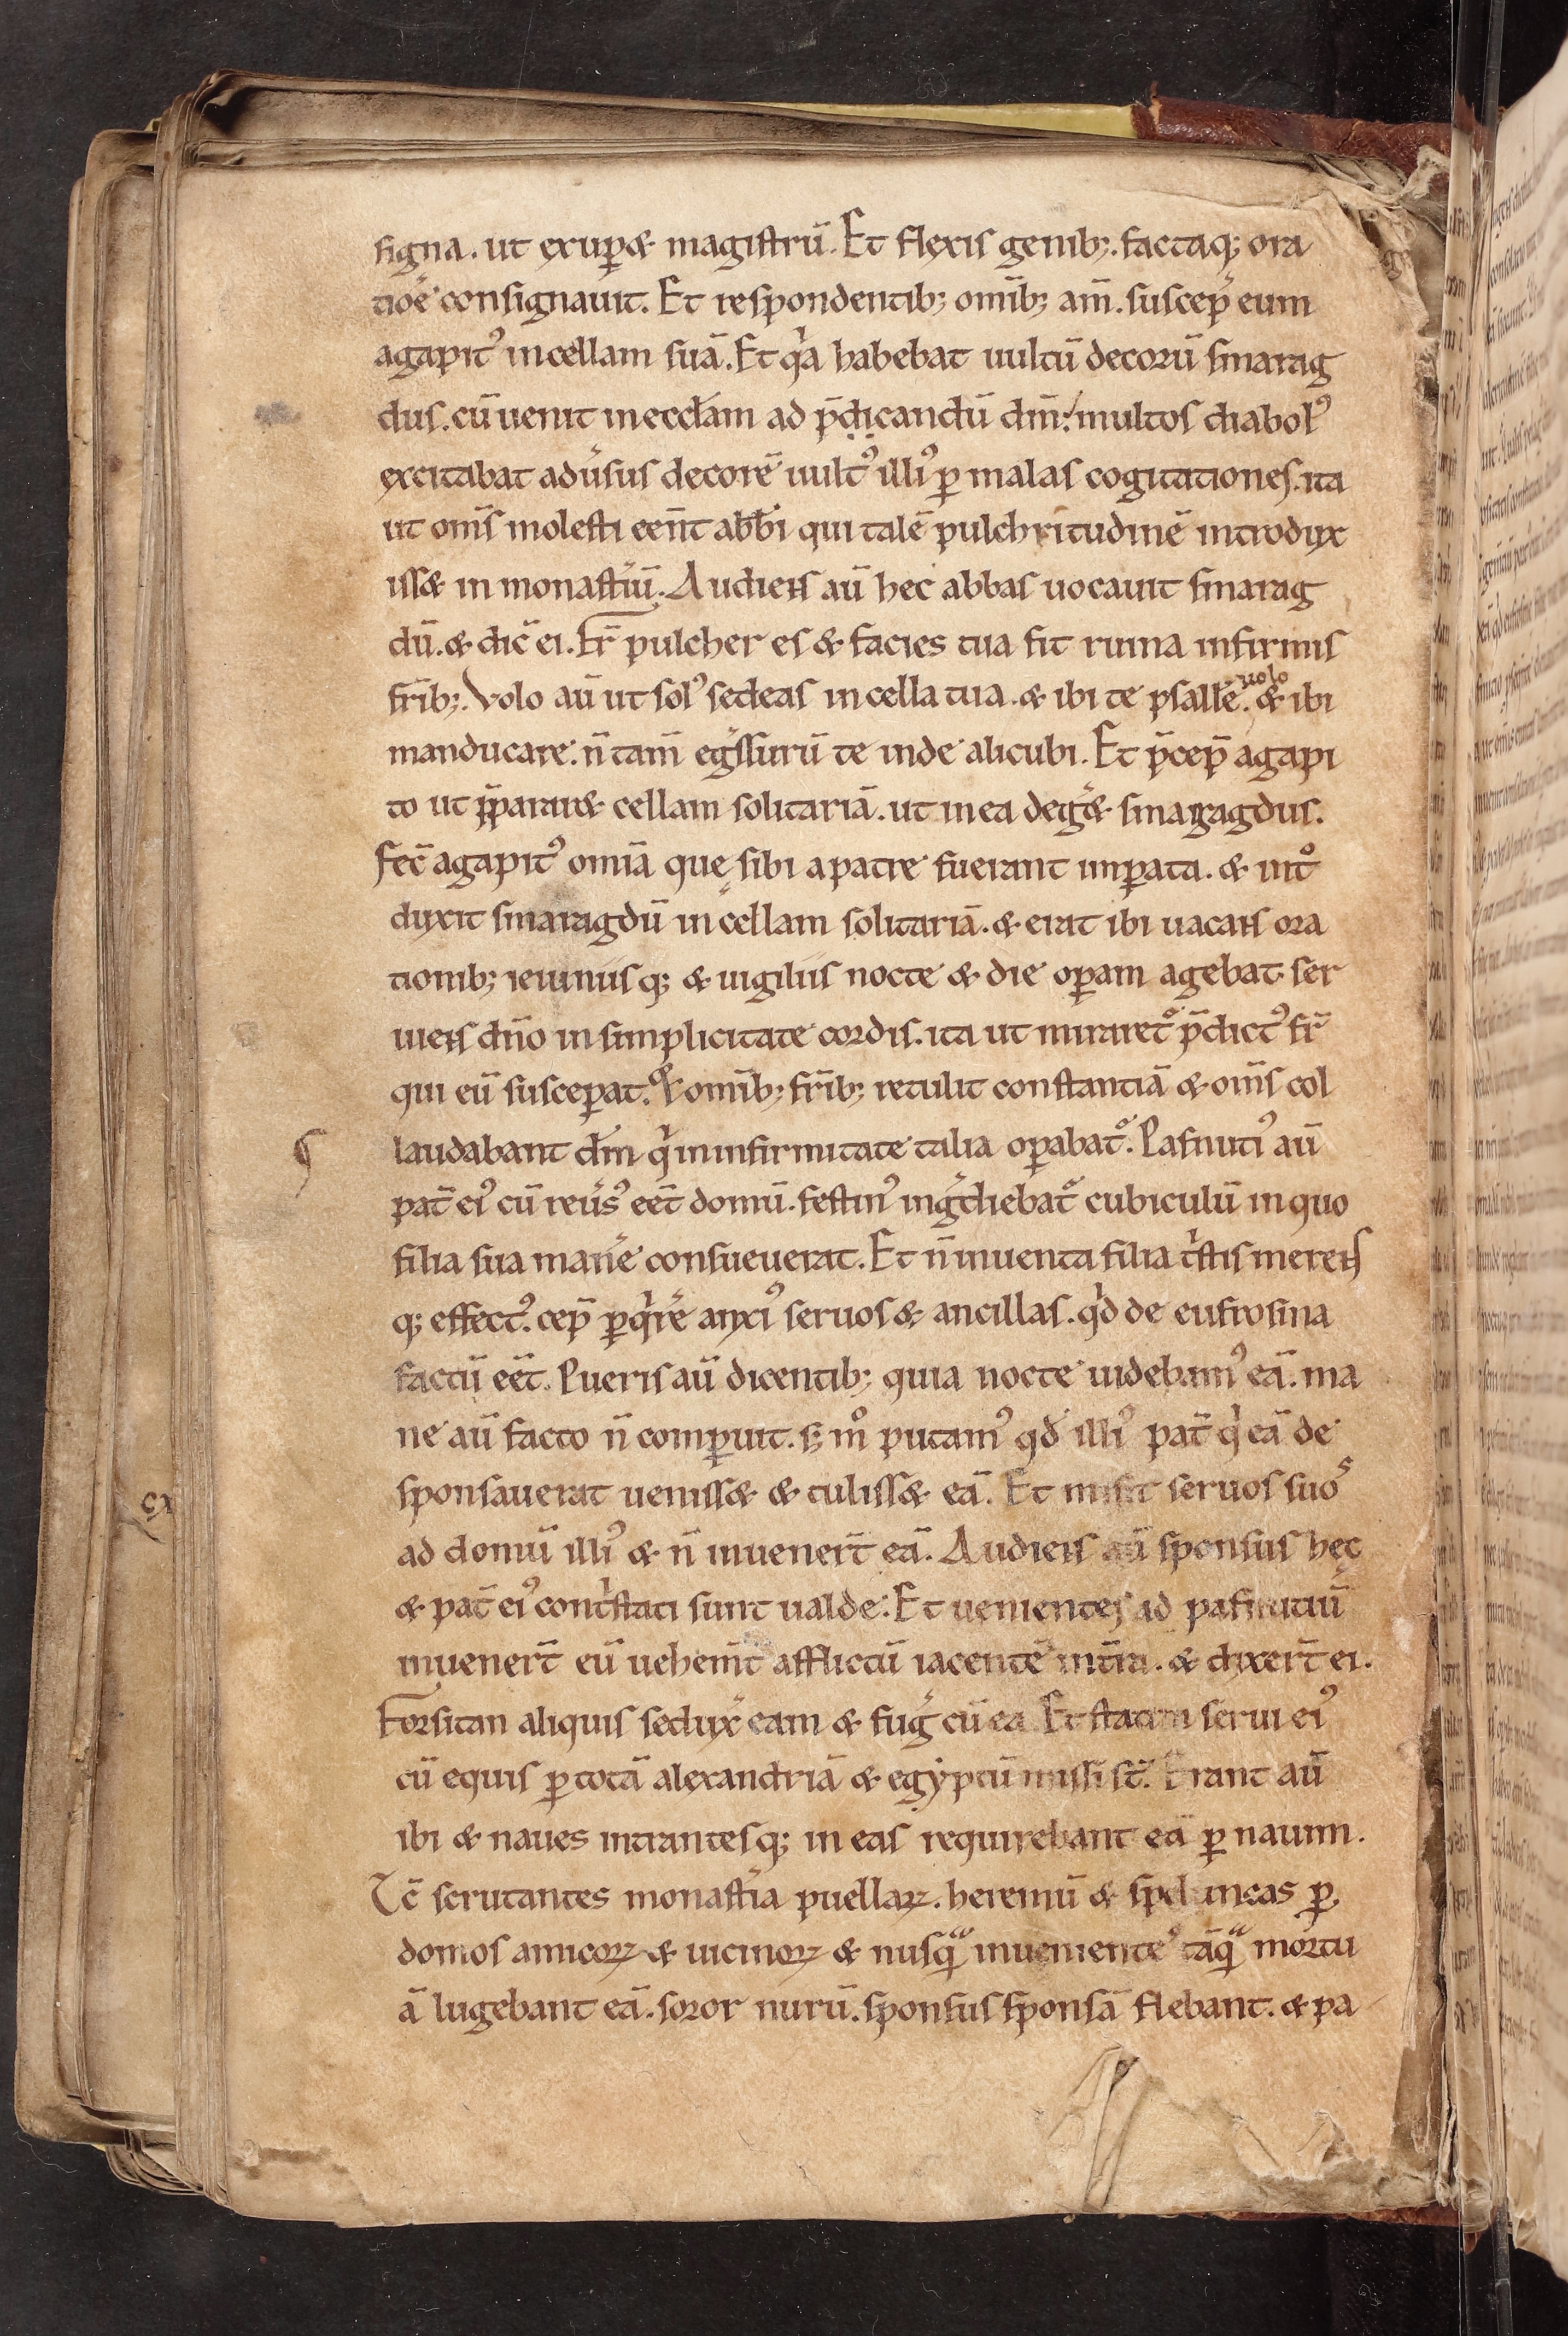 signa. ut exuꝑ& magistrū. Et flexis genib;. factaq; ora
tiōe consignauit. Et respondentib; om̄ib; am̄. suscep̄ eum
agapitꝰ incellam suā. Et qͥa habebat uultū decorū smarag
dus. cū uenit in eccl̄am ad p̄dicandū dm̄. multos diabolꝰ
excitabat adu͛sus decorē uultꝰ illiꝰ ꝑ malas cogitationes. ita
ut om̄s molesti een̄t abb̄i qui talē pulchritudinē introdux
iss& in monast͛iū. Audiens aū hec abbas uocauit smarag
dū. & dic̄ ei. Fr̄ pulcher es & facies tua fit ruina infirmis
fr̄ib;. Volo aū ut solꝰ sedeas in cella tua. & ibi te psall͛e uolo. & ibi
manducare. n̄ tam̄ eg͛ssurū te inde alicubi. Et p̄cep̄ agapi
to ut p̄parar& cellam solitariā. ut in ea deg͛& smaragdus.
Fec̄ agapitꝰ om̄ia que sibi a patre fuerant imꝑata. & intͦ
duxit smaragdū in cellam solitariā. & erat ibi uacans ora
tionib; ieiuniisq; & uigiliis nocte & die oꝑam agebat ser
uiens dn̄o in simplicitate cordis. ita ut miraret᷑ p̄dictꝰ fr̄
qui eū susceꝑat. & om̄ib; fr̄ib; retulit constantiā & om̄s col
laudabant dm̄ qͥ in infirmitate talia oꝑabat᷑. Pafnutiꝰ aū
pat̄ eiꝰ cū reu͛sꝰ eēt domū. festinꝰ ing͛diebat᷑ cubiculū in quo
filia sua man͛e consueuerat. Et n̄ inuenta filia tͥstis merens
q; effectꝰ. cep̄ ꝑqͥr͛e anxiꝰ seruos & ancillas. qͥd de eufrosina
factū eēt. Pueris aū dicentib; quia nocte uidebamꝰ eā. ma
ne aū facto n̄ comꝑuit. s; mͦ putamꝰ qd̄ illiꝰ pat̄ qͥ eā de
sponsauerat ueniss& & tuliss& eā. Et misit seruos suos
ad domū illiꝰ & n̄ inuener̄t eā. Audiens aū sponsus hęc
& pat̄ eiꝰ contͥstati sunt ualde. Et uenientes ad pafnutiū
inuener̄t eū uehem̄t afflictū iacentē in t̄ra. & dixer̄t ei.
Forsitan aliquis sedux͛ eam & fug͛ cū ea. Et statim serui eiꝰ
cū equis ꝑ totā alexandriā & egyptū missi st̄. Erant aū
ibi & naues intrantesq; in eas requirebant eā ꝑ nauim.
Tc̄ scrutantes monast͛ia puellaꝝ. heremū & speluncas ꝑ
domos amicoꝝ & uicinoꝝ & nusqᷓ inuenientes tāqᷓ mortu
ā lugebant eā. soror nurū. sponsus sponsā flebant. & pa